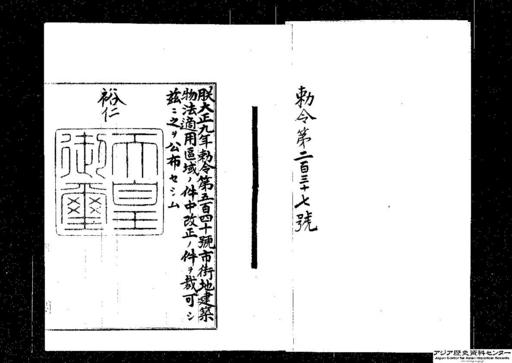 勅令第二百三十七號
朕大正九年勅令第五百四十號市街地建築
物法適用區域ノ件中改正ノ件ヲ裁可シ
茲ニ之ヲ公布セシム
裕仁
天皇
御璽
アジア歴史資料センター
Japan Center for Asian Historical Records